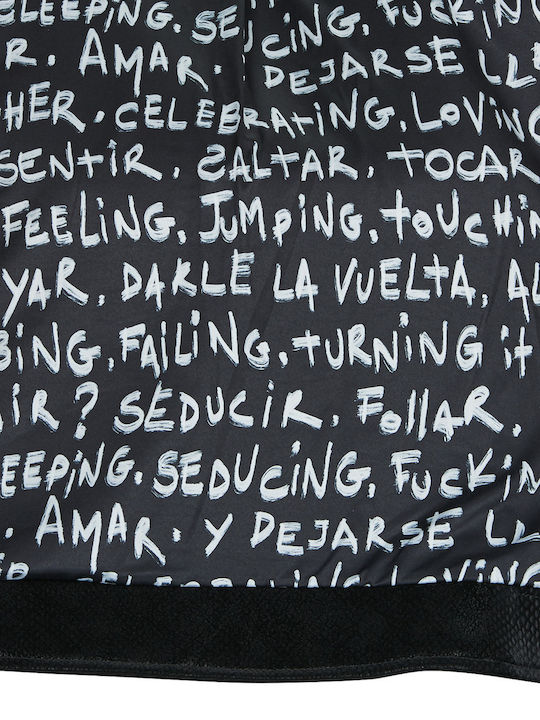 SLEEPING. SEDUCING. FUCKIN
R. AMAR. Y DEJARSE LLE
HER. CELEBRATING. LOVING
SENTIR. SALTAR. TOCAR
FEELING. JUMPING. TOUCHIN
YAR. DARLE LA VUELTA. AL
BING. FAILING. TURNING IT
IR? SEDUCIR. FOLLAR.
EEPING. SEDUCING. FUCKIN
. AMAR. Y DEJARSE LL
CELEBRATING. LOVING